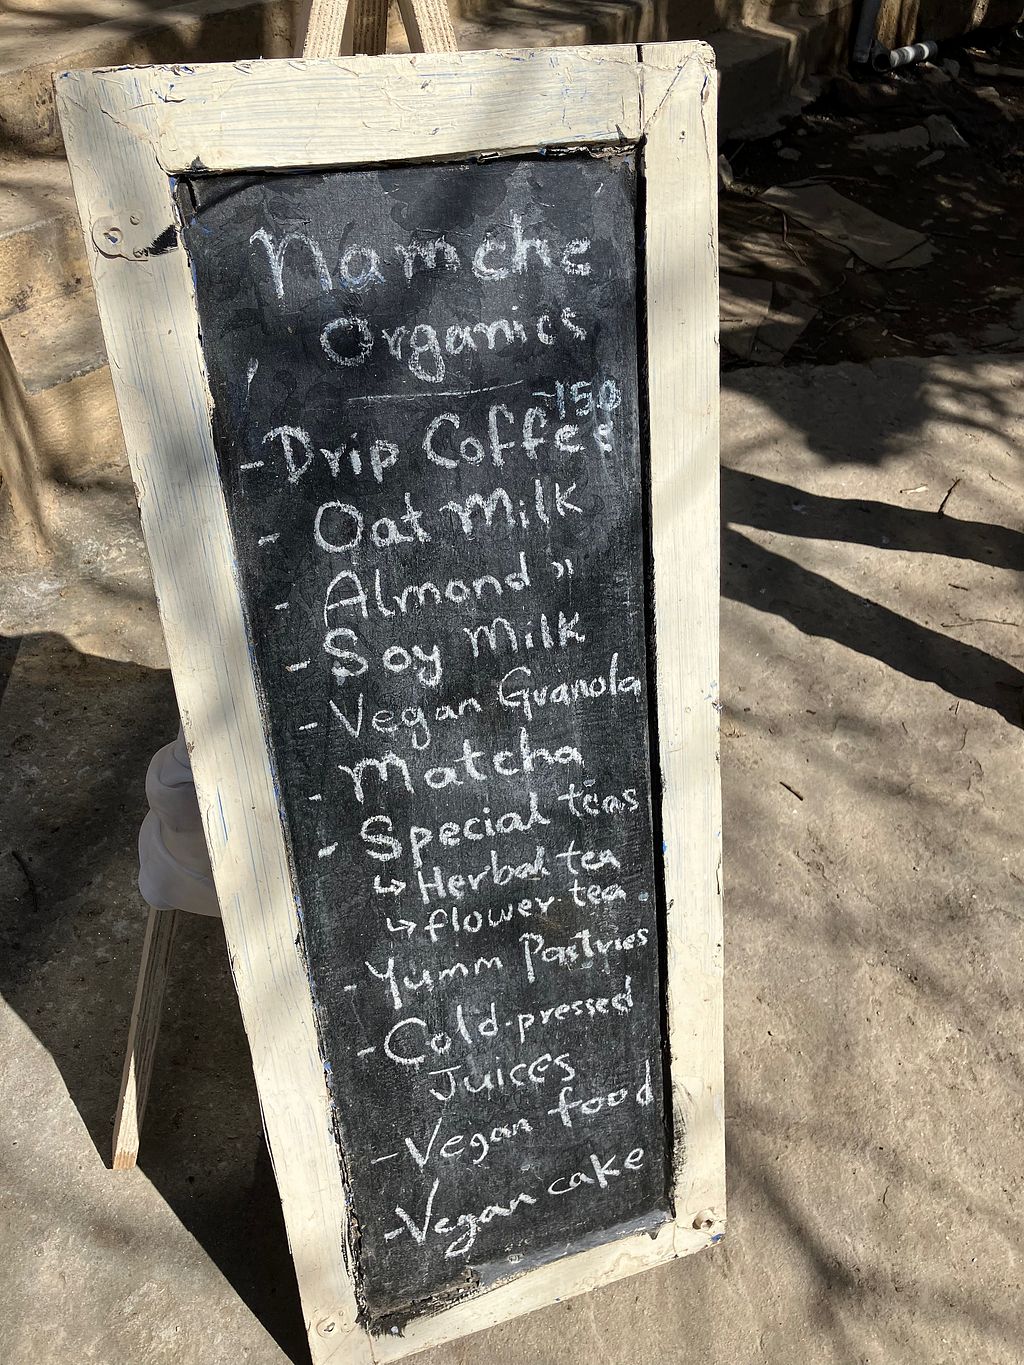 Namche
Organics
-150
- Drip Coffee
- Oat Milk
- Almond "
- Soy Milk
- Vegan Granola
- Matcha
- Special teas
↳ Herbal tea
↳ flower tea.
- Yumm Pastries
- Cold-pressed
Juices
- Vegan food
- Vegan cake